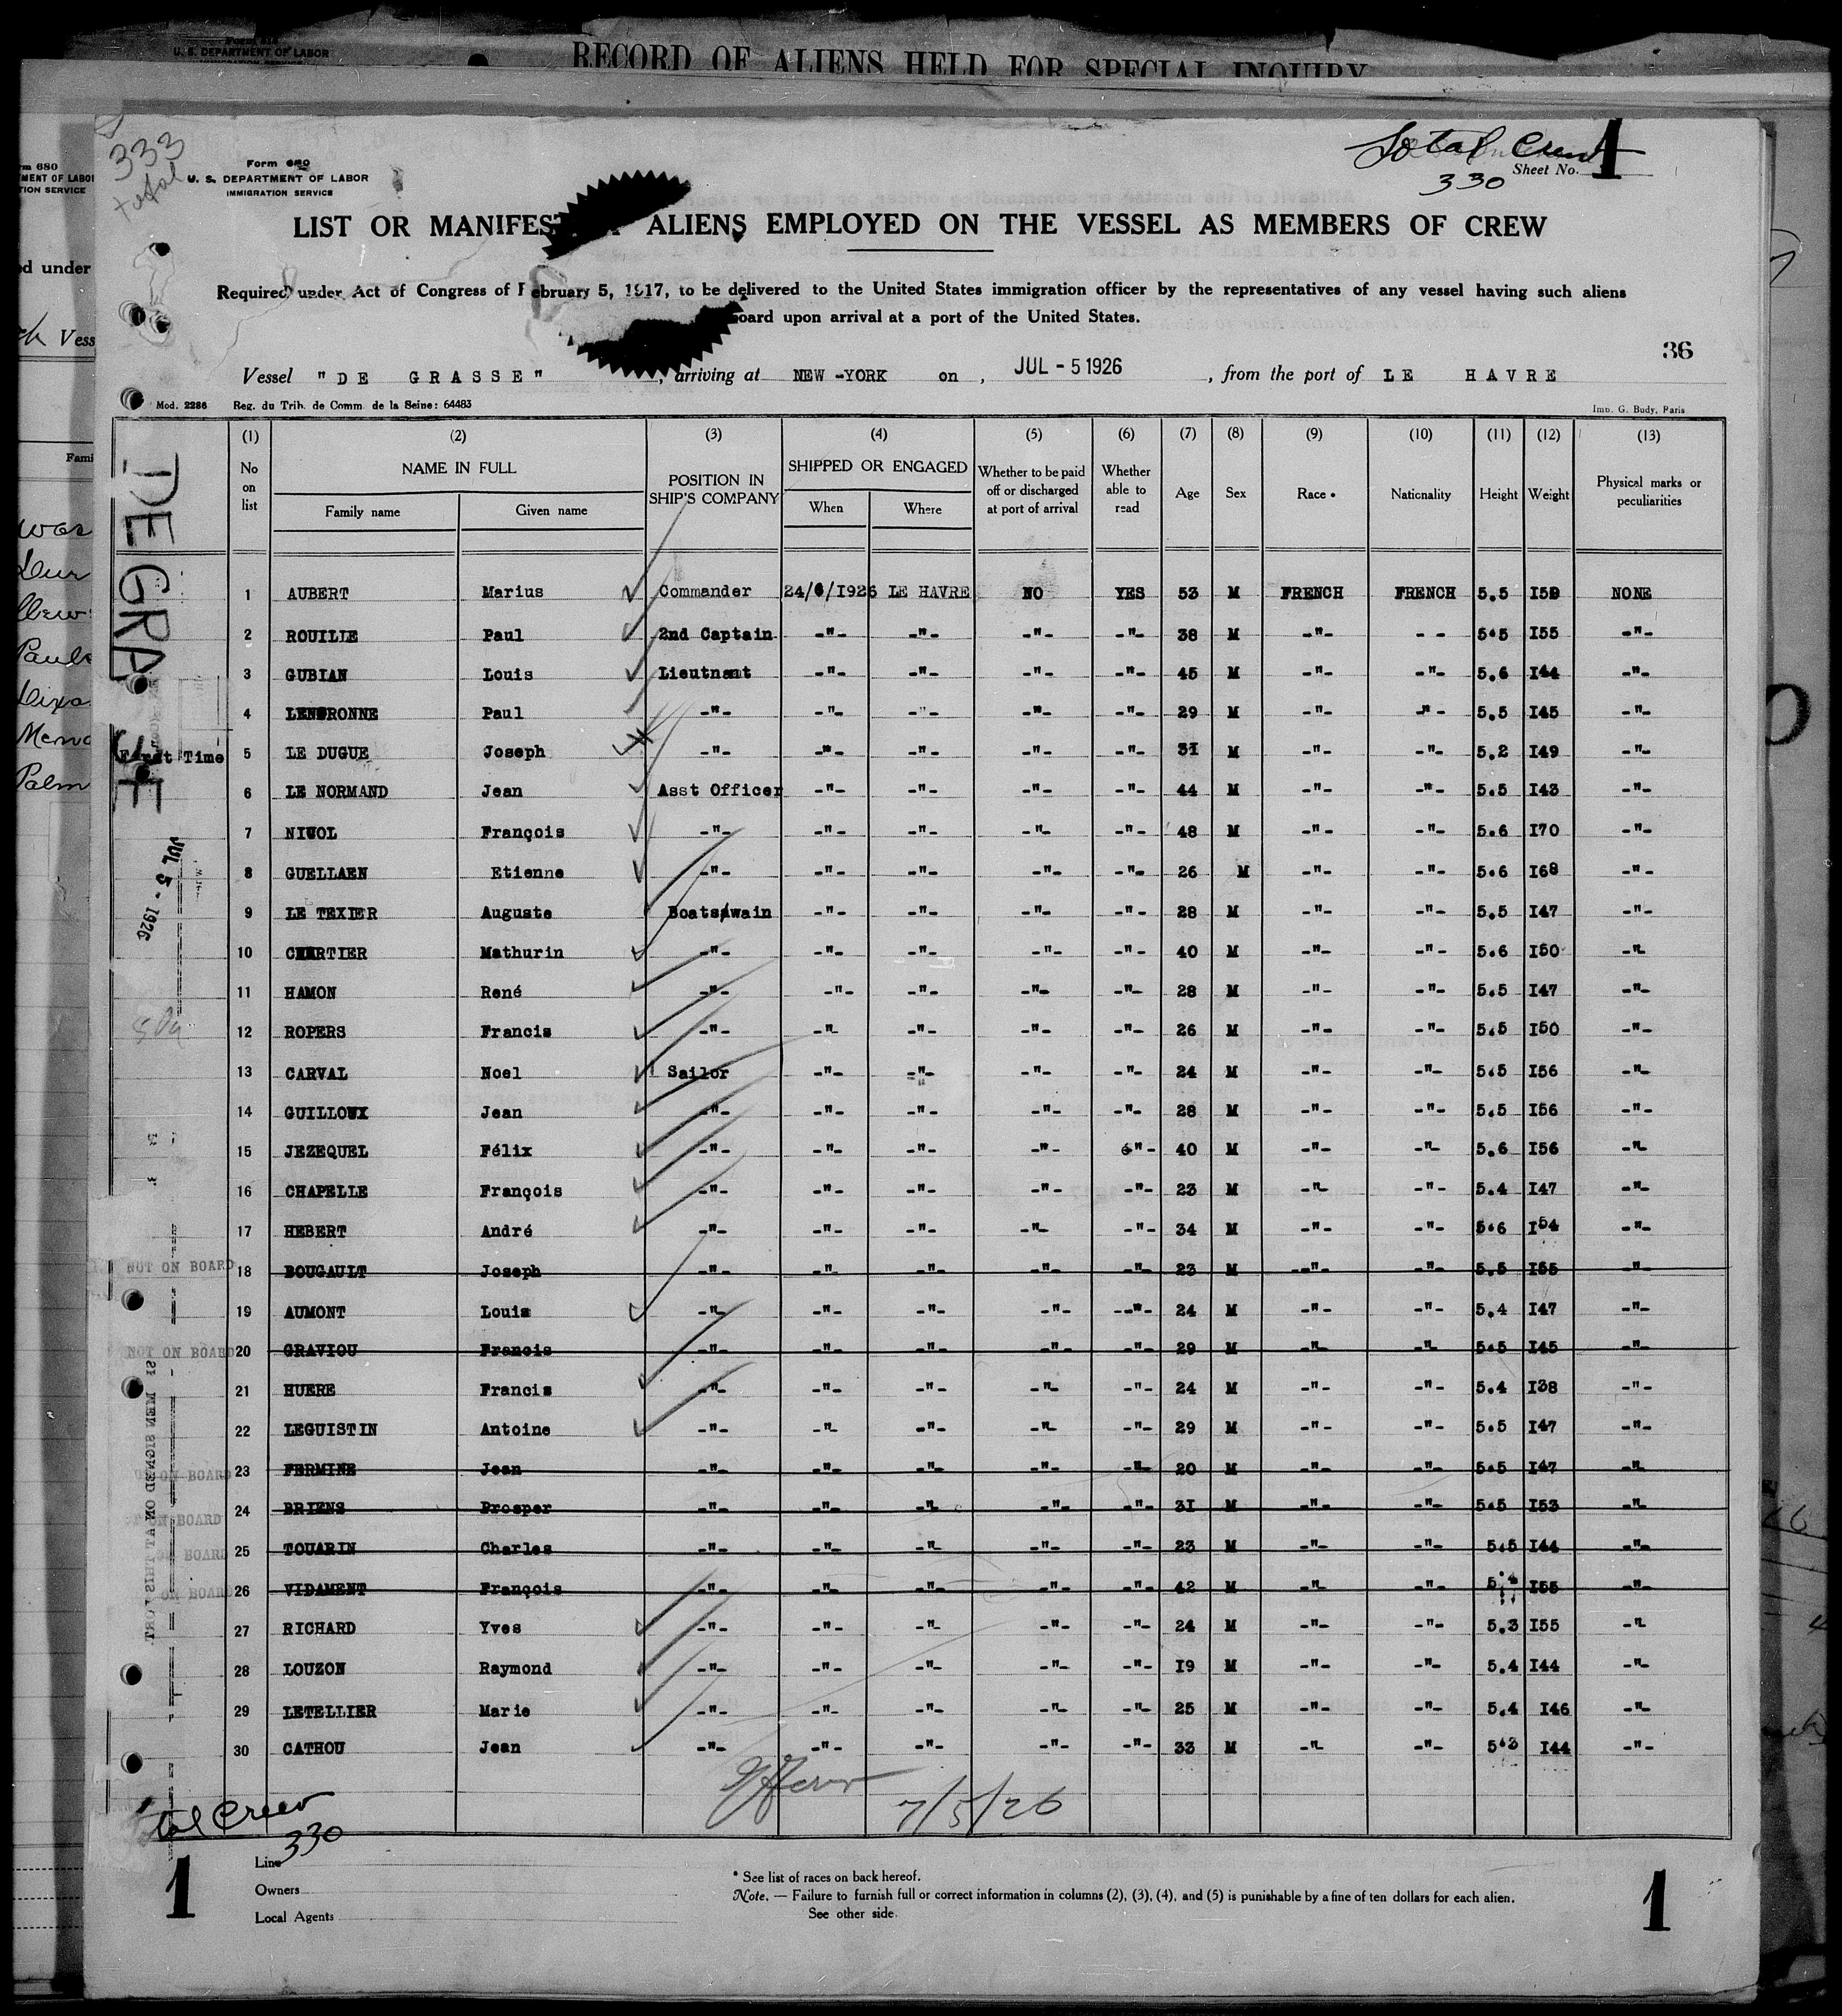 Form 514
U. S. DEPARTMENT OF LABOR
RECORD OF ALIENS HELD FOR SPECIAL INQUIRY
333
total
Form 680
U. S. DEPARTMENT OF LABOR
IMMIGRATION SERVICE
Total Crew
330
Sheet No. 1
LIST OR MANIFEST ALIENS EMPLOYED ON THE VESSEL AS MEMBERS OF CREW
Required under Act of Congress of February 5, 1917, to be delivered to the United States immigration officer by the representatives of any vessel having such aliens
board upon arrival at a port of the United States.
36
Vessel "DE GRASSE", arriving at NEW-YORK on, JUL - 5 1926, from the port of LE HAVRE
Mod. 2286 Reg. du Trib. de Comm. de la Seine: 64483 Imp. G. Budy, Paris
(1) (2) (3) (4) (5) (6) (7) (8) (9) (10) (11) (12) (13)
No on list NAME IN FULL Family name Given name POSITION IN SHIP'S COMPANY SHIPPED OR ENGAGED When Where Whether to be paid off or discharged at port of arrival Whether able to read Age Sex Race * Nationality Height Weight Physical marks or peculiarities
1 AUBERT Marius Commander 24/6/1926 LE HAVRE NO YES 53 M FRENCH FRENCH 5.5 I59 NONE
2 ROUILLE Paul 2nd Captain -"- -"- -"- -"- 38 M -"- - - 5.5 I55 -"-
3 GUBIAN Louis Lieutnant -"- -"- -"- -"- 45 M -"- -"- 5.6 I44 -"-
4 Paul -"- -"- -"- -"- -"- 29 M -"- -"- 5.5 I45 -"-
First Time 5 LE DUGUE Joseph -"- -"- -"- -"- -"- 3I M -"- -"- 5.2 I49 -"-
6 LE NORMAND Jean Asst Officer -"- -"- -"- -"- 44 M -"- -"- 5.5 I43 -"-
7 NICOL François -"- -"- -"- -"- -"- 48 M -"- -"- 5.6 I70 -"-
8 GUELLAEN Etienne -"- -"- -"- -"- -"- 26 M -"- -"- 5.6 I68 -"-
9 LE TEXIER Auguste Boatswain -"- -"- -"- -"- 28 M -"- -"- 5.5 I47 -"-
10 CHARTIER Mathurin -"- -"- -"- -"- -"- 40 M -"- -"- 5.6 I50 -"-
11 HAMON René -"- -"- -"- -"- -"- 28 M -"- -"- 5.5 I47 -"-
12 ROPERS Francis -"- -"- -"- -"- -"- 26 M -"- -"- 5.5 I50 -"-
13 CARVAL Noel Sailor -"- -"- -"- -"- 24 M -"- -"- 5.5 I56 -"-
14 GUILLOUX Jean -"- -"- -"- -"- -"- 28 M -"- -"- 5.5 I56 -"-
15 JEZEQUEL Félix -"- -"- -"- -"- -"- 40 M -"- -"- 5.6 I56 -"-
16 CHAPELLE François -"- -"- -"- -"- -"- 23 M -"- -"- 5.4 I47 -"-
17 HEBERT André -"- -"- -"- -"- -"- 34 M -"- -"- 5.6 I54 -"-
NOT ON BOARD 18 BOUGAULT Joseph -"- -"- -"- -"- -"- 23 M -"- -"- 5.5 I55 -"-
19 AUMONT Louis -"- -"- -"- -"- -"- 24 M -"- -"- 5.4 I47 -"-
NOT ON BOARD 20 GRAVIOU Francis -"- -"- -"- -"- -"- 29 M -"- -"- 5.5 I45 -"-
21 HUERE Francis -"- -"- -"- -"- -"- 24 M -"- -"- 5.4 I38 -"-
22 LEGUISTIN Antoine -"- -"- -"- -"- -"- 29 M -"- -"- 5.5 I47 -"-
ON BOARD 23 FERMINE Jean -"- -"- -"- -"- -"- 20 M -"- -"- 5.5 I47 -"-
ON BOARD 24 BRIENS Prosper -"- -"- -"- -"- -"- 3I M -"- -"- 5.5 I53 -"-
BOARD 25 TOUARIN Charles -"- -"- -"- -"- -"- 23 M -"- -"- 5.5 I44 -"-
ON BOARD 26 VIDAMENT François -"- -"- -"- -"- -"- 42 M -"- -"- 5.4 I55 -"-
27 RICHARD Yves -"- -"- -"- -"- -"- 24 M -"- -"- 5.3 I55 -"-
28 LOUZON Raymond -"- -"- -"- -"- -"- I9 M -"- -"- 5.4 I44 -"-
29 LETELLIER Marie -"- -"- -"- -"- -"- 25 M -"- -"- 5.4 I46 -"-
30 CATHOU Jean -"- -"- -"- -"- -"- 33 M -"- -"- 5.3 I44 -"-
7/5/26
tal Crew
330
DE GRASSE
JUL 5 - 1926
MEN SIGNED ON AT THIS PORT.
Line
Owners
Local Agents
* See list of races on back hereof.
Note. — Failure to furnish full or correct information in columns (2), (3), (4), and (5) is punishable by a fine of ten dollars for each alien.
See other side.
1
1